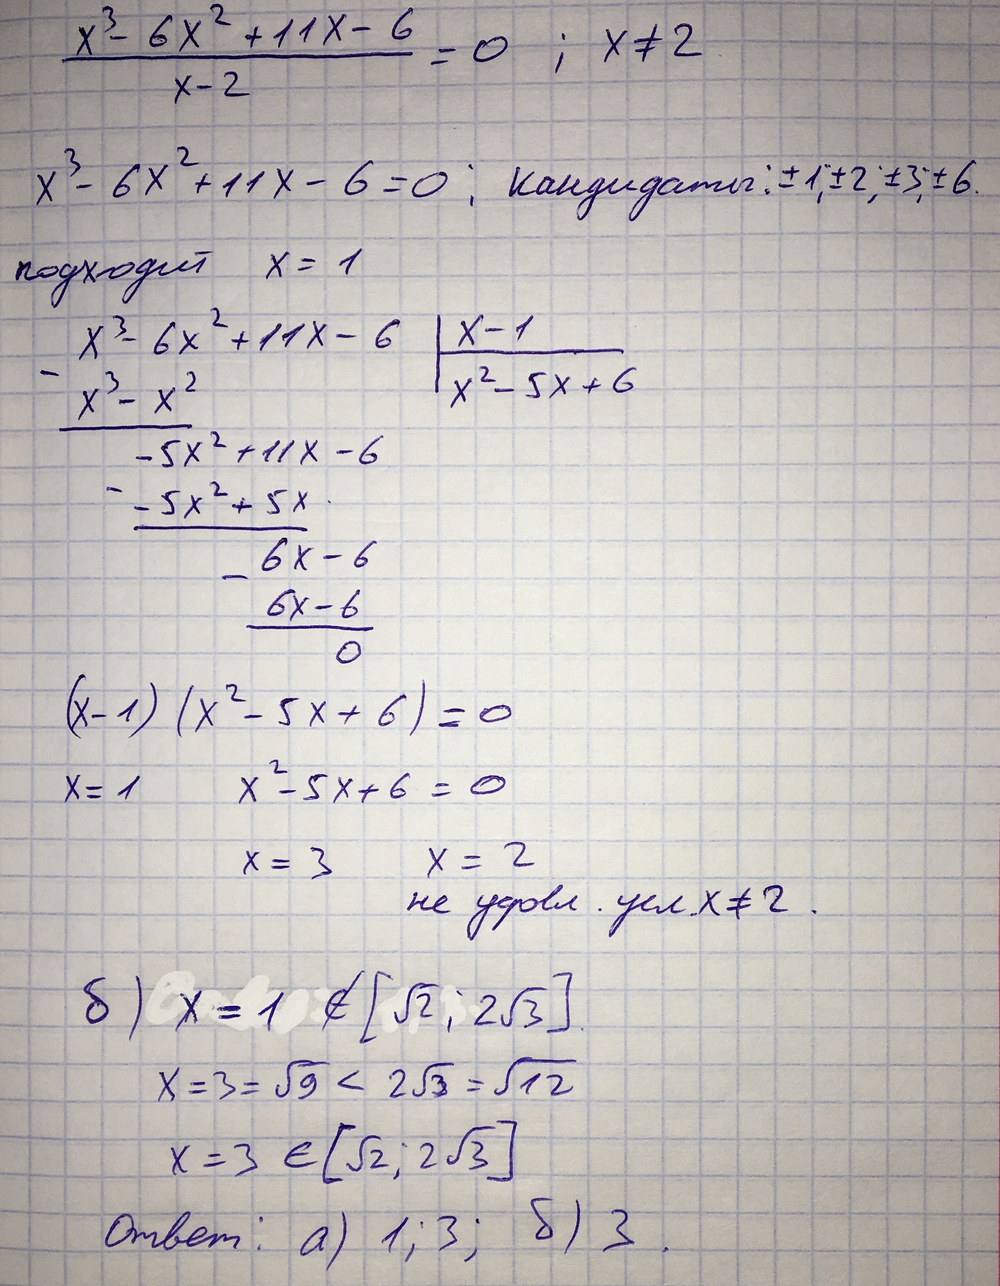 x³ - 6x² + 11x - 6
/ x - 2 = 0 ; x ≠ 2
x³ - 6x² + 11x - 6 = 0; кандидаты: ±1; ±2; ±3; ±6.
подходит x = 1
x³ - 6x² + 11x - 6 | x - 1
- x³ - x² | x² - 5x + 6
-5x² + 11x - 6
- -5x² + 5x
6x - 6
- 6x - 6
0
(x - 1) (x² - 5x + 6) = 0
x = 1 x² - 5x + 6 = 0
x = 3 x = 2
не удовл. усл. x ≠ 2.
б) x = 1 ∉ [√2; 2√3].
x = 3 = √9 < 2√3 = √12
x = 3 ∈ [√2; 2√3]
Ответ: а) 1; 3; б) 3.